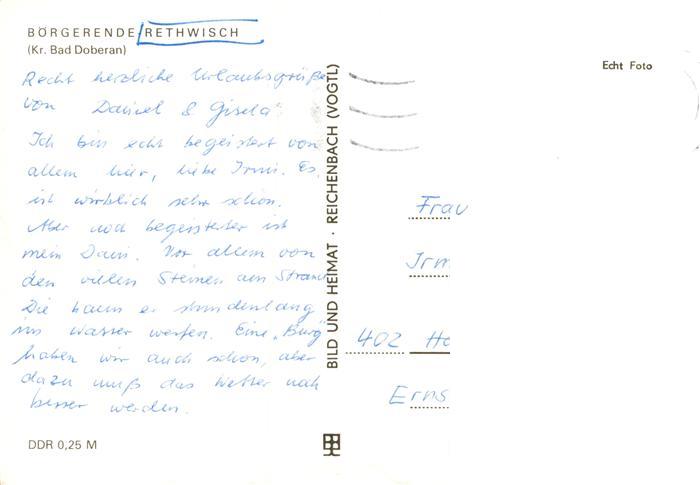 BÖRGERENDE-RETHWISCH
(Kr. Bad Doberan)
Recht herzliche Urlaubsgrüße
von Daniel & Gisela
Ich bin echt begeistert von
allem hier, liebe Irmi. Es
ist wirklich sehr schön.
Aber noch begeisterter ist
mein Dani. Vor allem von
den vielen Steinen am Strand
Die kann er stundenlang
ins Wasser werfen. Eine "Burg"
haben wir auch schon, aber
dazu muß das Wetter noch
besser werden.
DDR 0,25 M
BILD UND HEIMAT · REICHENBACH (VOGTL)
Echt Foto
Frau
Irm
402 Ha
Erns